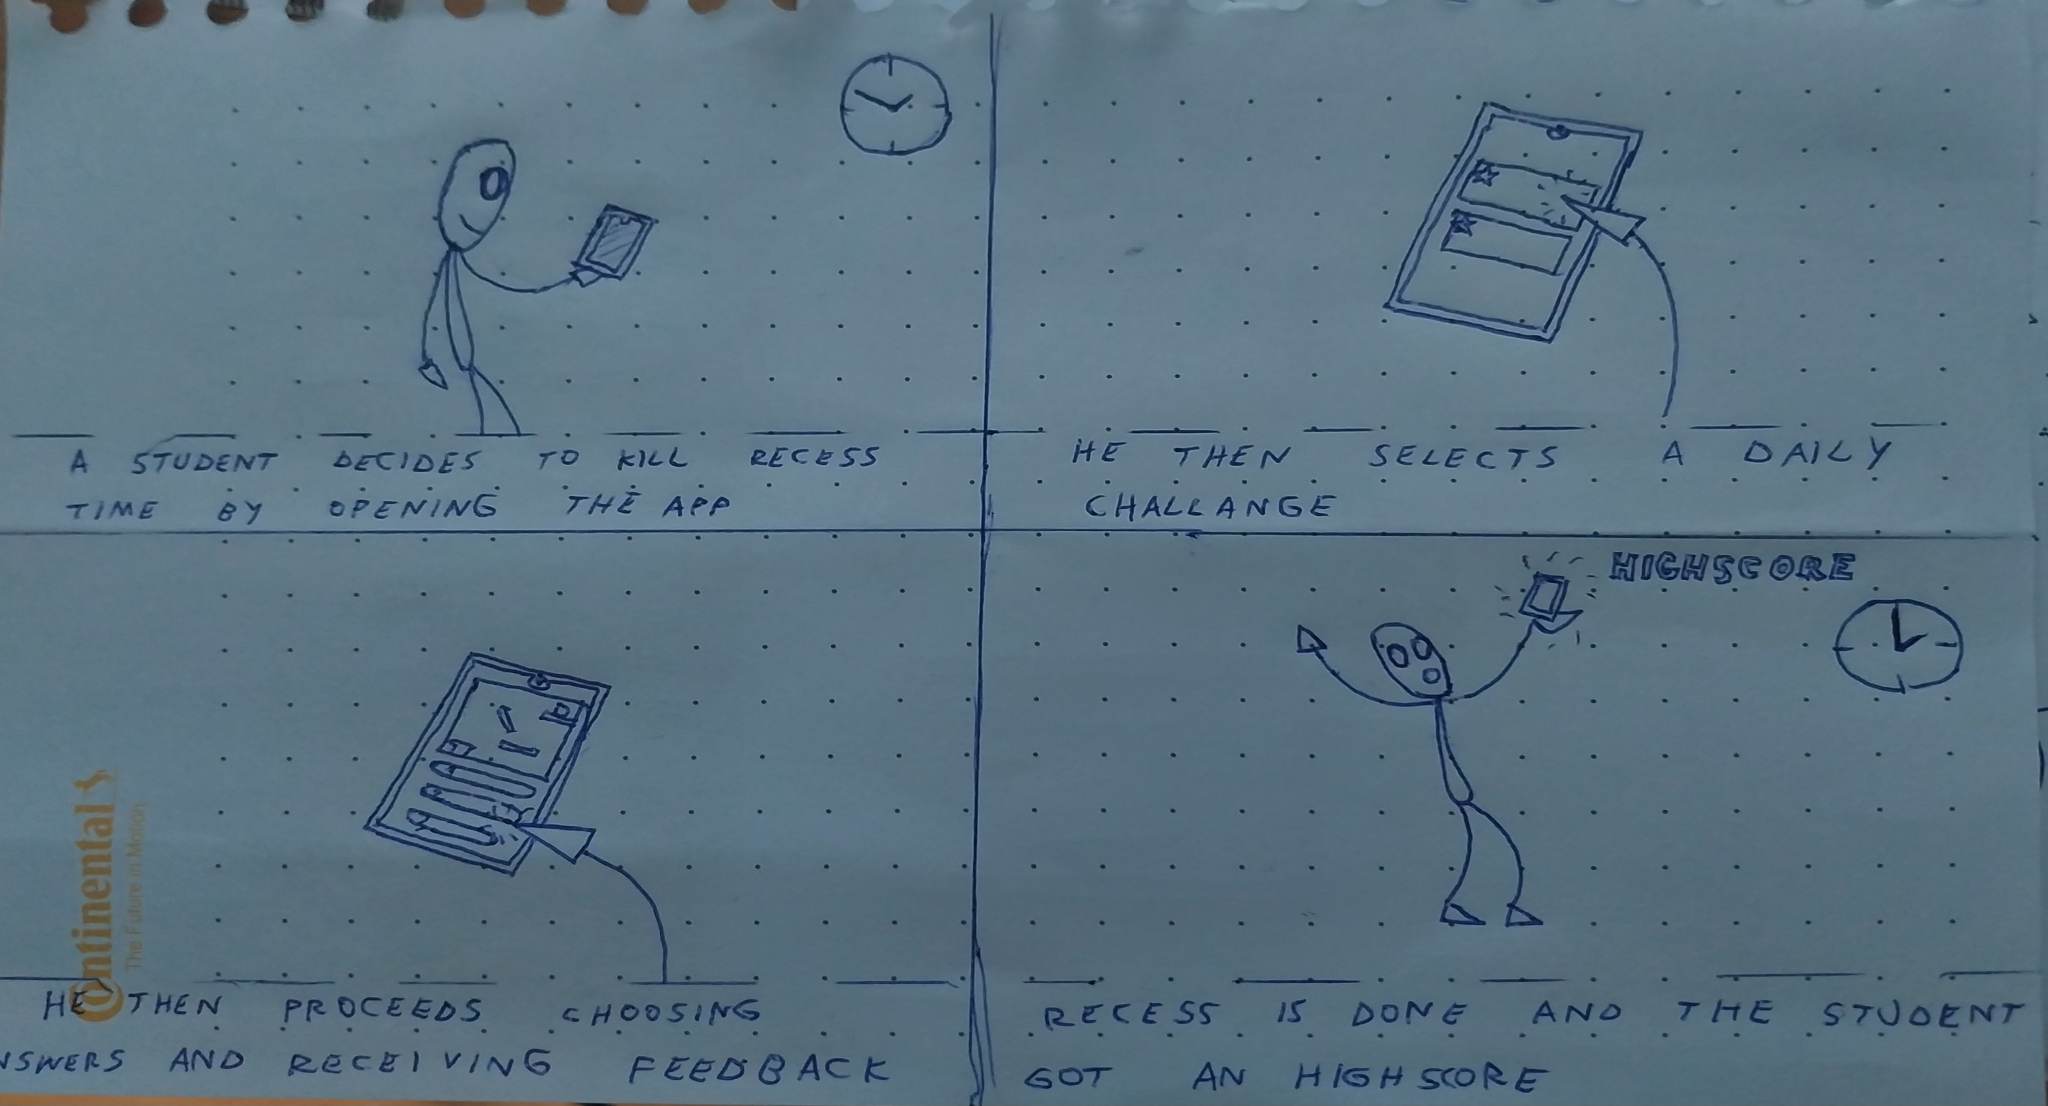 A STUDENT DECIDES TO KILL RECESS
TIME BY OPENING THE APP
HE THEN SELECTS A DAILY
CHALLANGE
HIGHSCORE
Continental
The Future in Motion
HE THEN PROCEEDS CHOOSING
NSWERS AND RECEIVING FEEDBACK
RECESS IS DONE AND THE STUDENT
GOT AN HIGHSCORE